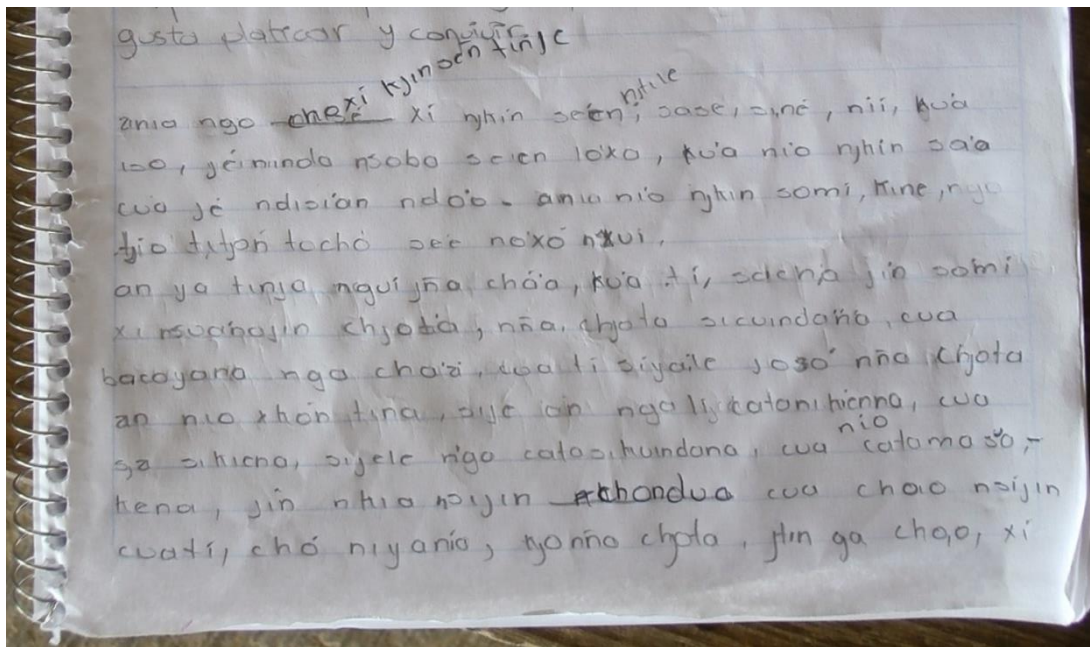 gusta platicar y convivir
xi kjin sen tinje
ania ngo xi nghin seen, nitile sase, sine, nii, kua
iso, jeiminda nsoba seien loxa, kua nio nghin saa
cua je ndisian ndoo. ania nio nghin somi, kine, ngo
tjio tochó see noxó nxui,
an ya tinja nguijña cháa, kua ti, sdena jin somi
xi chjotia, nña, chjota sicuindaña, cua
bacoyana nga chaxi, cua ti siyaile joso nña chjota
an nio xhon tina, sije ian nga li catonihienna, cua
ga sihiena, sijele nigo catasihuindana, cua nio catamaso,-
kena, jin nhia noijin chondua cua chao nsijin
cuati, chó niyania, nonña chjota, jtin ga chao, xi